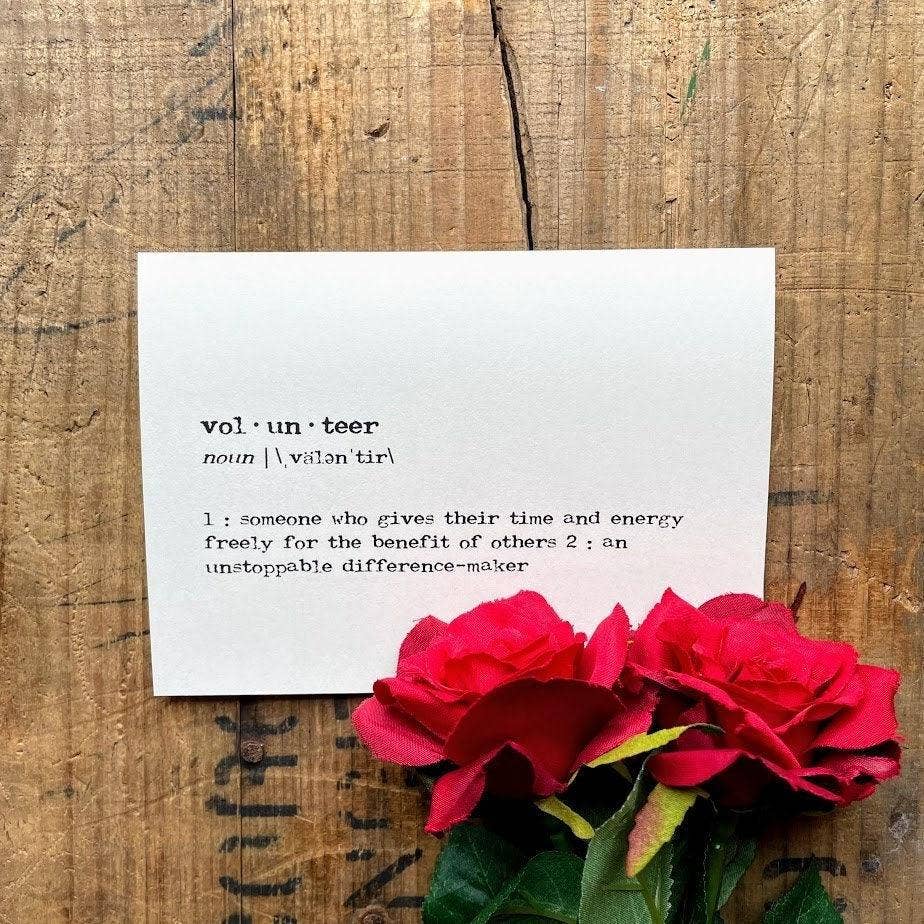 vol·un·teer
noun |\ˌvälənˈtir\
1 : someone who gives their time and energy
freely for the benefit of others 2 : an
unstoppable difference-maker